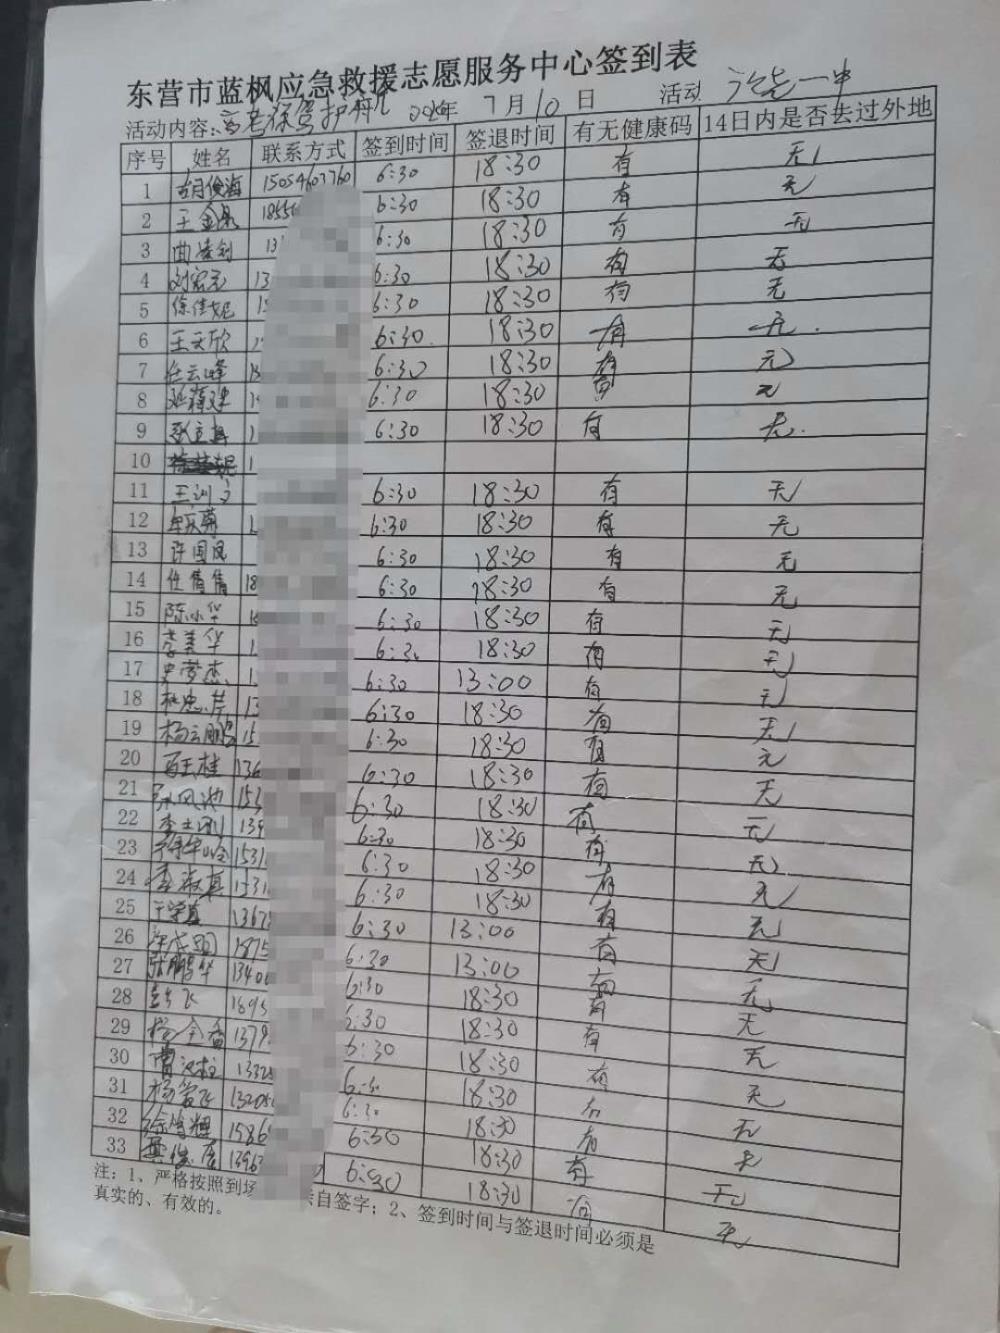 东营市蓝枫应急救援志愿服务中心签到表
活动内容:高考保驾护航 年 7月10日 活动 一中
序号 姓名 联系方式 签到时间 签退时间 有无健康码 14日内是否去过外地
1 胡俊海 15054607760 6:30 18:30 有 无
2 王金泉 1855 6:30 18:30 有 无
3 曲 13 6:30 18:30 有 无
4 刘宏元 13 6:30 18:30 有 无
5 徐佳妮 6:30 18:30 有 无
6 王文欣 6:30 18:30 有 无
7 任云峰 6:30 18:30 有 无
8 6:30 18:30 有 无
9 6:30 18:30 有 无
10
11 王训 6:30 18:30 有 无
12 6:30 18:30 有 无
13 许国凤 6:30 18:30 有 无
14 任倩倩 18 6:30 18:30 有 无
15 陈小华 6:30 18:30 有 无
16 李美华 6:30 18:30 有 无
17 史梦杰 6:30 13:00 有 无
18 杜忠 13 6:30 18:30 有 无
19 杨云鹏 15 6:30 18:30 有 无
20 百玉桂 136 6:30 18:30 有 无
21 153 6:30 18:30 有 无
22 李士刚 139 6:30 18:30 有 无
23 1531 6:30 18:30 有 无
24 李淑真 1531 6:30 18:30 有 无
25 1367 6:30 13:00 有 无
26 1875 6:30 13:00 有 无
27 张鹏华 1340 6:30 18:30 有 无
28 飞 1895 6:30 18:30 有 无
29 杨全香 1379 6:30 18:30 有 无
30 曹汉柱 1332 6:30 18:30 有 无
31 杨爱飞 1320 6:30 18:30 有 无
32 徐 辉 1586 6:30 18:30 有 无
33 1396 6:30 18:30 有 无
注:1、严格按照到场 亲自签字;2、签到时间与签退时间必须是
真实的、有效的。